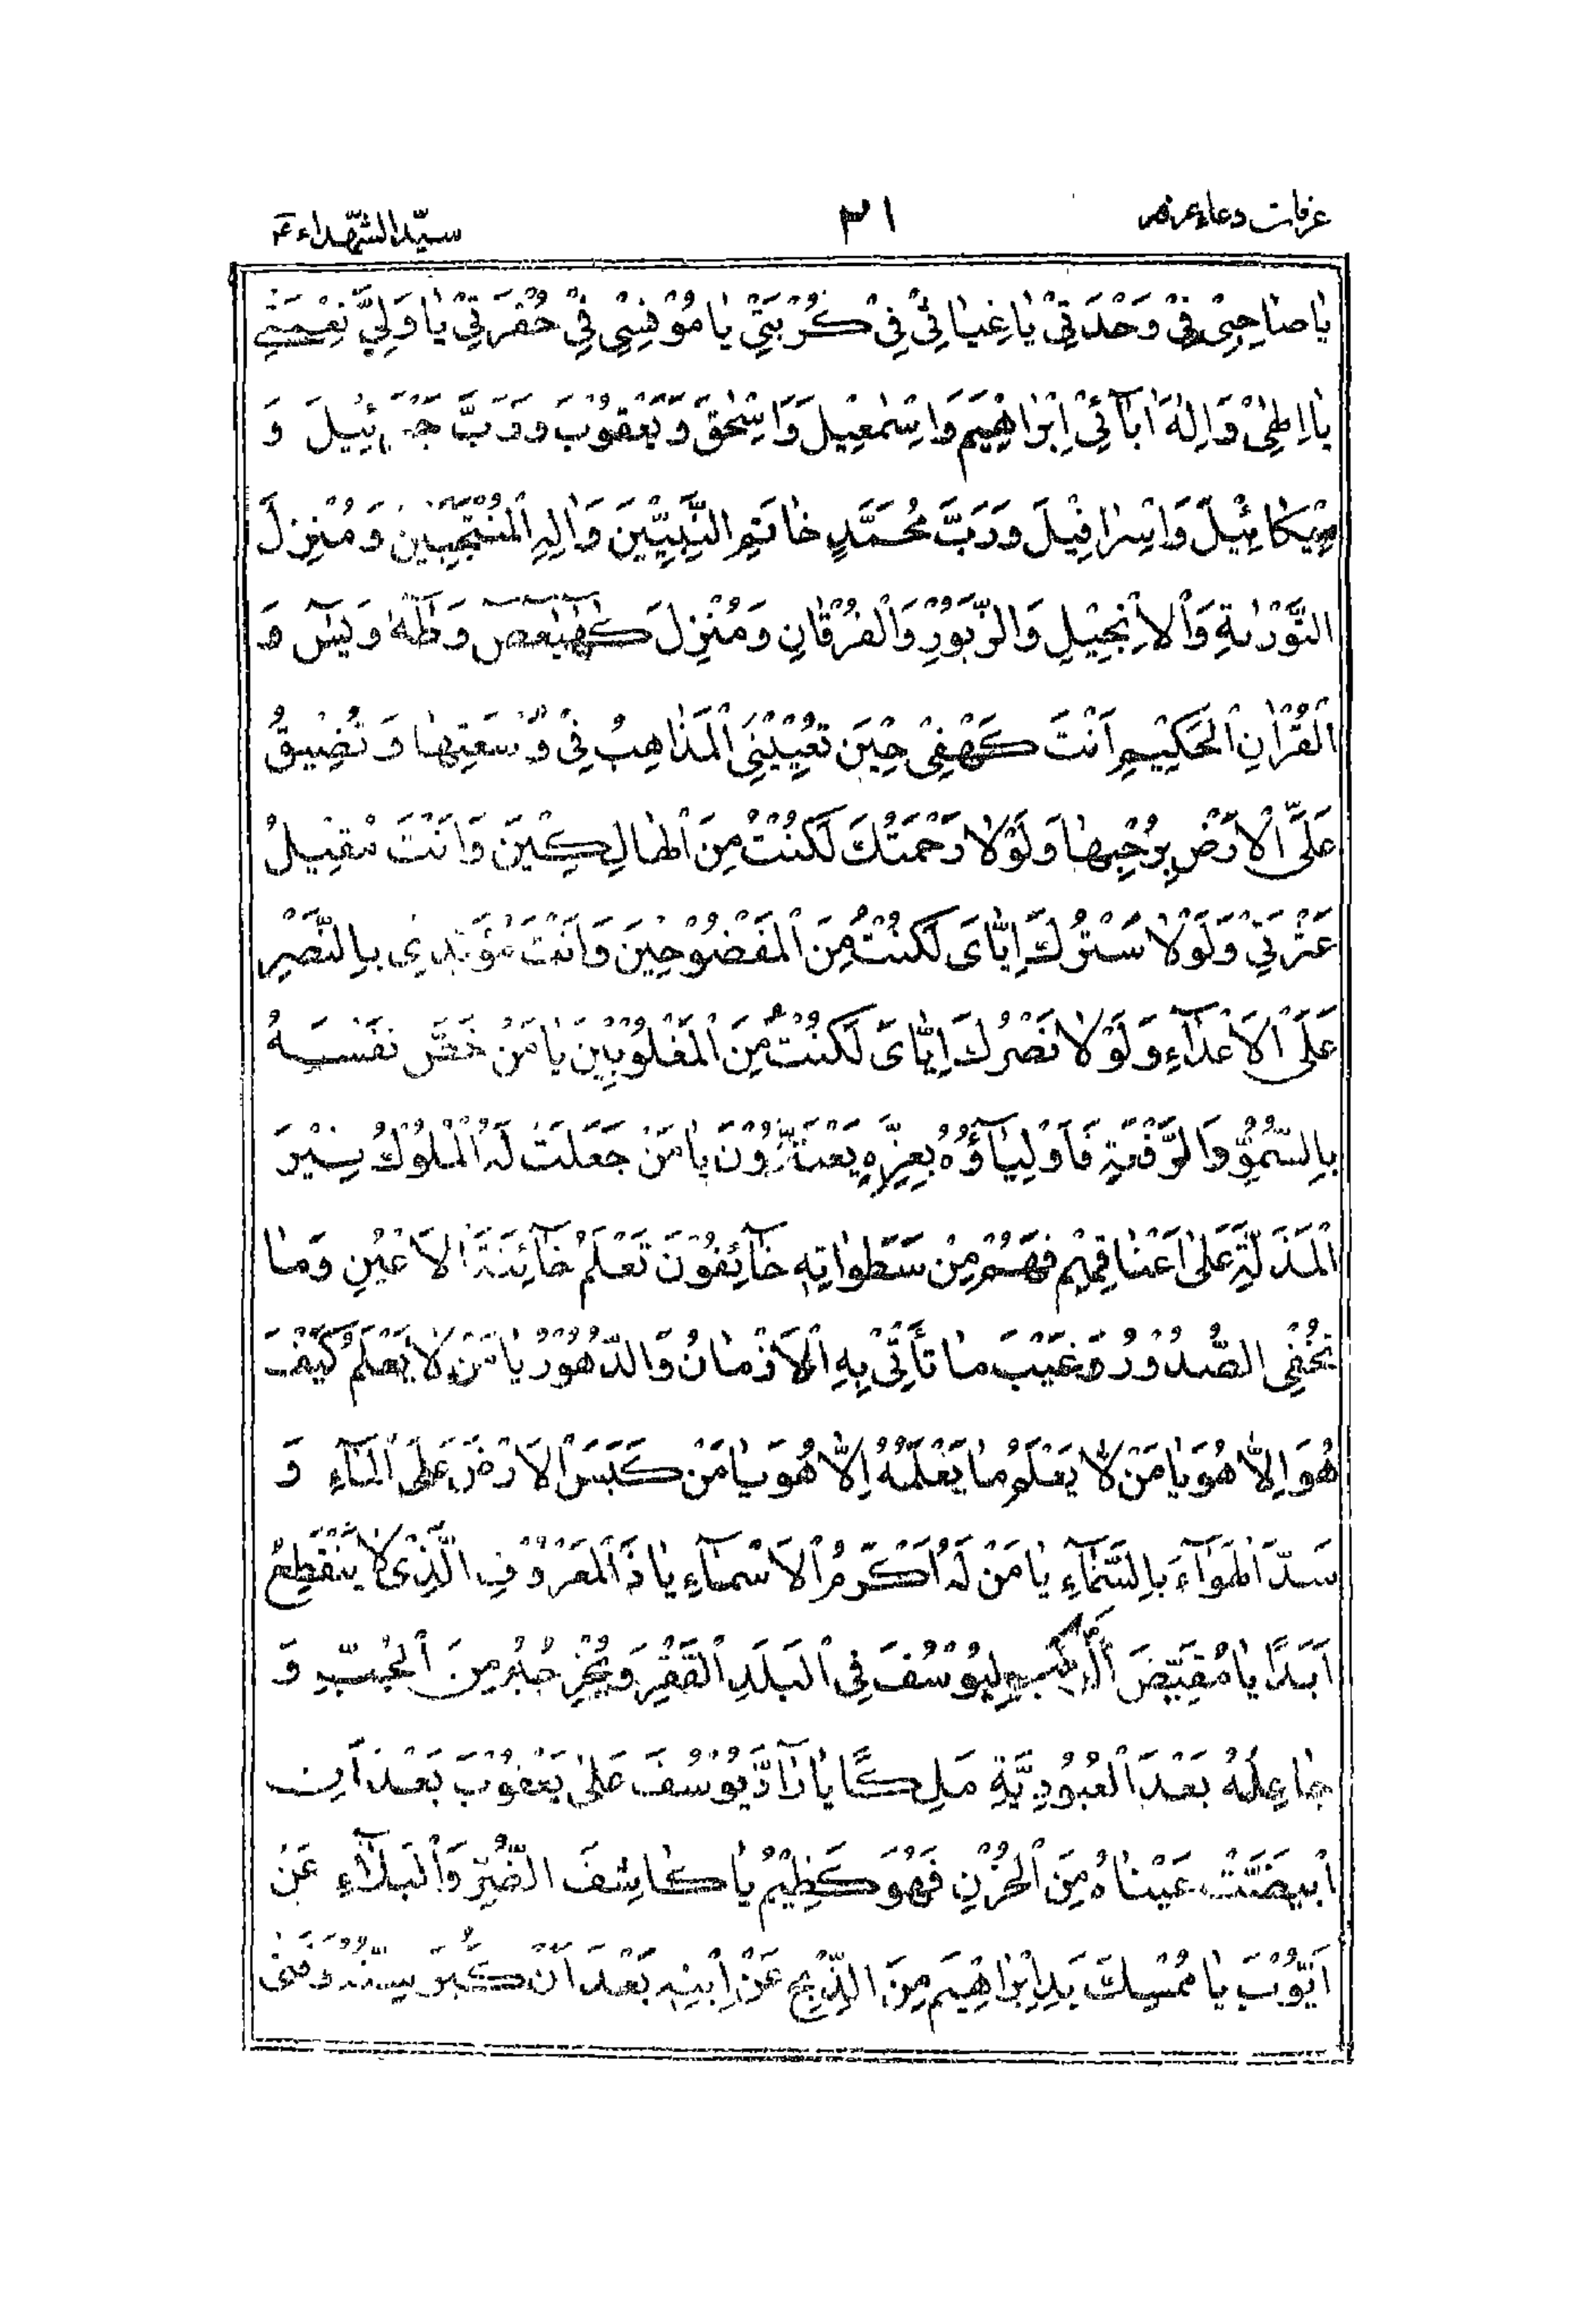 عرفات دعاءعرفہ
٣١
سیّد الشّهداءؑ
یٰاصٰاحِبِیْ فِیْ وَحْدَتِیْ یٰاغِیٰاثِیْ فِیْ کُرْبَتِیْ یٰامُوْنِسِیْ فِیْ حُفْرَتِیْ یٰاوَلِیَّ نِعْمَتِیْ
یٰااِلٰهِیْ وَاِلٰهَ اٰبٰآئِیْ اِبْرَاهِیْمَ وَاِسْمٰعِیْلَ وَاِسْحٰقَ وَیَعْقُوْبَ وَرَبَّ جَبْرَئِیْلَ وَ
مِیْکَائِیْلَ وَاِسْرَافِیْلَ وَرَبَّ مُحَمَّدٍ خٰاتَمِ النَّبِیِّیْنَ وَاٰلِهِ الْمُنْتَجَبِیْنَ وَمُنْزِلَ
التَّوْرٰىةِ وَالْاِنْجِیْلِ وَالزَّبُوْرِ وَالْفُرْقٰانِ وَمُنْزِلَ کٓهٰیٰعٓصٓ وَطٰهٰ وَیٰسٓ وَ
الْقُرْاٰنِ الْحَکِیْمِ اَنْتَ کَهْفِیْ حِیْنَ تُعْیِیْنِیَ الْمَذٰاهِبُ فِیْ وُسْعَتِهٰا وَتَضِیْقُ
عَلَیَّ الْاَرْضُ بِرُحْبِهٰا وَلَوْلٰا رَحْمَتُكَ لَکُنْتُ مِنَ الْهٰالِکِیْنَ وَاَنْتَ مُقِیْلُ
عَثْرَتِیْ وَلَوْلٰا سَتْرُكَ اِیّٰایَ لَکُنْتُ مِنَ الْمَفْضُوْحِیْنَ وَاَنْتَ مُؤَیِّدِیْ بِالنَّصْرِ
عَلَی الْاَعْدَآءِ وَلَوْلٰا نَصْرُكَ اِیّٰایَ لَکُنْتُ مِنَ الْمَغْلُوْبِیْنَ یٰامَنْ خَصَّ نَفْسَهُ
بِالسُّمُوِّ وَالرِّفْعَةِ فَاَوْلِیٰآؤُهُ بِعِزِّهِ یَعْتَزُّوْنَ یٰامَنْ جَعَلَتْ لَهُ الْمُلُوْكُ نِیْرَ
الْمَذَلَّةِ عَلٰی اَعْنٰاقِهِمْ فَهُمْ مِنْ سَطَوٰاتِهِ خٰآئِفُوْنَ تَعْلَمُ خٰآئِنَةَ الْاَعْیُنِ وَمٰا
تُخْفِی الصُّدُوْرُ وَغَیْبَ مٰا تَأْتِیْ بِهِ الْاَزْمٰانُ وَالدُّهُوْرُ یٰامَنْ لٰا یَعْلَمُ کَیْفَ
هُوَ اِلّٰا هُوَ یٰامَنْ لٰا یَعْلَمُ مٰا یَعْلَمُهُ اِلّٰا هُوَ یٰامَنْ کَبَسَ الْاَرْضَ عَلَی الْمٰآءِ وَ
سَدَّ الْهَوٰآءَ بِالسَّمٰآءِ یٰامَنْ لَهُ اَکْرَمُ الْاَسْمٰآءِ یٰاذَاالْمَعْرُوْفِ الَّذِیْ لٰا یَنْقَطِعُ
اَبَدًا یٰامُقَیِّضَ الرَّکْبِ لِیُوْسُفَ فِی الْبَلَدِ الْقَفْرِ وَمُخْرِجَهُ مِنَ الْجُبِّ وَ
جٰاعِلَهُ بَعْدَ الْعُبُوْدِیَّةِ مَلِکًا یٰارَآدَّ یُوْسُفَ عَلٰی یَعْقُوْبَ بَعْدَ اَنِ
ابْیَضَّتْ عَیْنٰاهُ مِنَ الْحُزْنِ فَهُوَ کَظِیْمٌ یٰاکٰاشِفَ الضُّرِّ وَالْبَلٰآءِ عَنْ
اَیُّوْبَ یٰامُمْسِكَ یَدِ اِبْرٰاهِیْمَ مِنَ الذَّبْحِ عَنْ اِبْنِهِ بَعْدَ اَنْ کَبُرَ سِنُّهُ وَفَنٰی